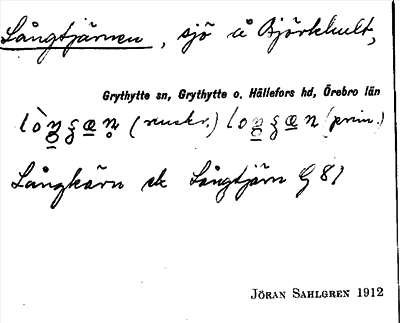 Långtjärnen, sjö å Björkhult,
Grythytte sn, Grythytte o. Hällefors hd, Örebro län
(muskr.) (prim.)
Långkärn ek Långtjärn G 81
JÖRAN SAHLGREN 1912